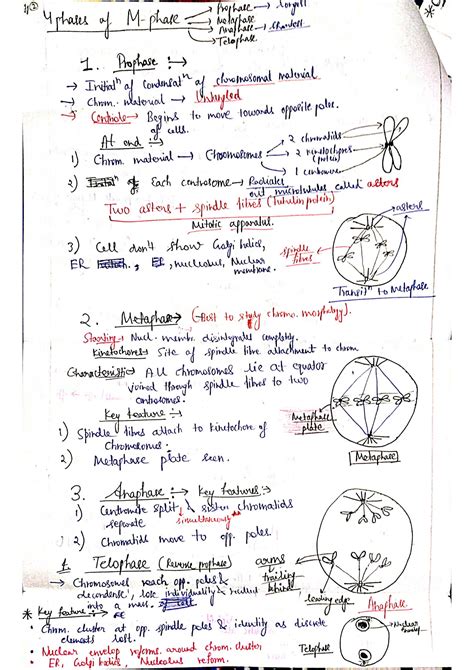 4 phases of M-phase → Prophase → Longest
→ Metaphase
→ Anaphase → Shortest
→ Telophase
1. Prophase :→
→ Initiatⁿ of condensatⁿ of chromosomal material
→ Chrom. material → Untangled
→ Centriole → Begins to move towards opposite poles
of cells.
At end :→
1) Chrom. material → Chromosomes → 2 chromatids
→ 2 kinetochores
(protein)
→ 1 centromere
2) Each centrosome → Radiates
out microtubules called asters
Two asters + spindle fibres (Tubulin protein)
Mitotic apparatus.
asters
3) Cell don't show Golgi bodies,
ER, nucleolus, Nuclear
membrane.
spindle
fibres
Transitⁿ to Metaphase
2. Metaphase → (Best to study chromo. morphology).
Starting : Nucl. membr. disintegrates completely.
Kinetochore : Site of spindle fibre attachment to chrom
Characteristic : All chromosomes lie at equator
joined through spindle fibres to two
centrosomes.
Key feature :→
1) Spindle fibres attach to kinetochore of
Chromosomes.
2) Metaphase plate seen.
Metaphase
plate
Metaphase
3. Anaphase :→ Key features :→
1) Centromere split & sister chromatids
separate simultaneously
2) Chromatids move to opp. poles.
arms
→ trailing
behind
leading edge
Anaphase
1. Telophase (Reverse prophase)
→ Chromosomes reach opp. poles &
decondense, lose individuality &
into a mass.
* Key feature :→
• Chrom. cluster at opp. spindle poles & identity as discrete
elements lost.
• Nuclear envelop reforms around chrom. cluster
• ER, Golgi bodies, Nucleolus reform.
Telophase
Nuclear
envelop